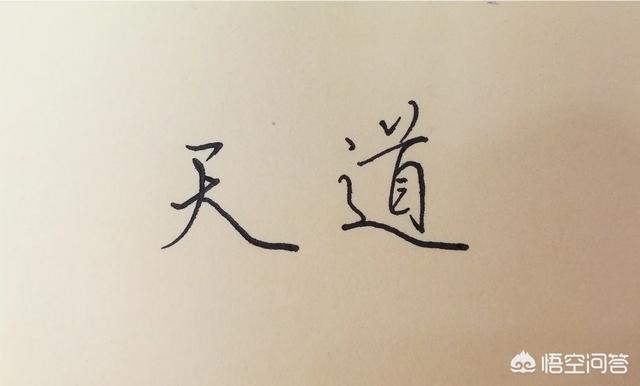 天道
悟空问答